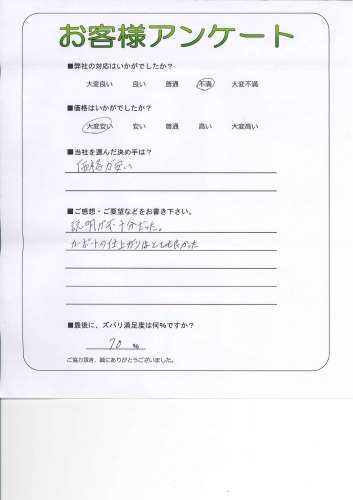 お客様アンケート
■弊社の対応はいかがでしたか？
大変良い 良い 普通 不満 大変不満
■価格はいかがでしたか？
大変安い 安い 普通 高い 大変高い
■当社を選んだ決め手は？
価格が安い
■ご感想・ご要望などをお書き下さい。
説明が不十分だった。
カーポートの仕上がりはとても良かった
■最後に、ズバリ満足度は何%ですか？
70 %
ご協力頂き、誠にありがとうございました。